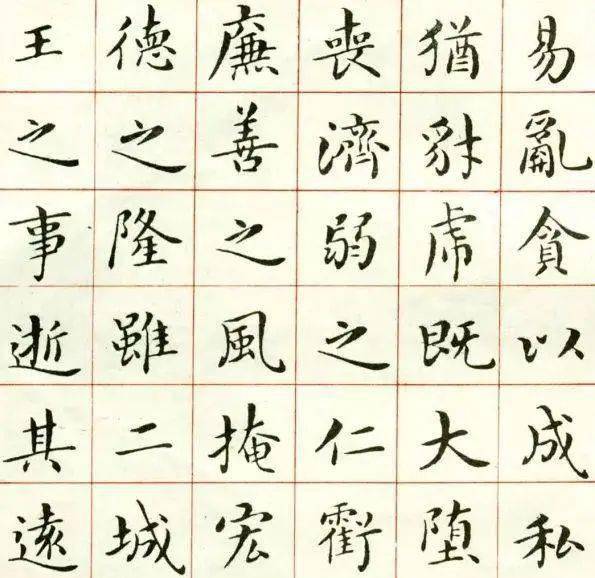 易亂貪以成私
猶豺虎既大墮
喪濟弱之仁虧
廉善之風掩宏
德之隆雖二城
王之事逝其遠